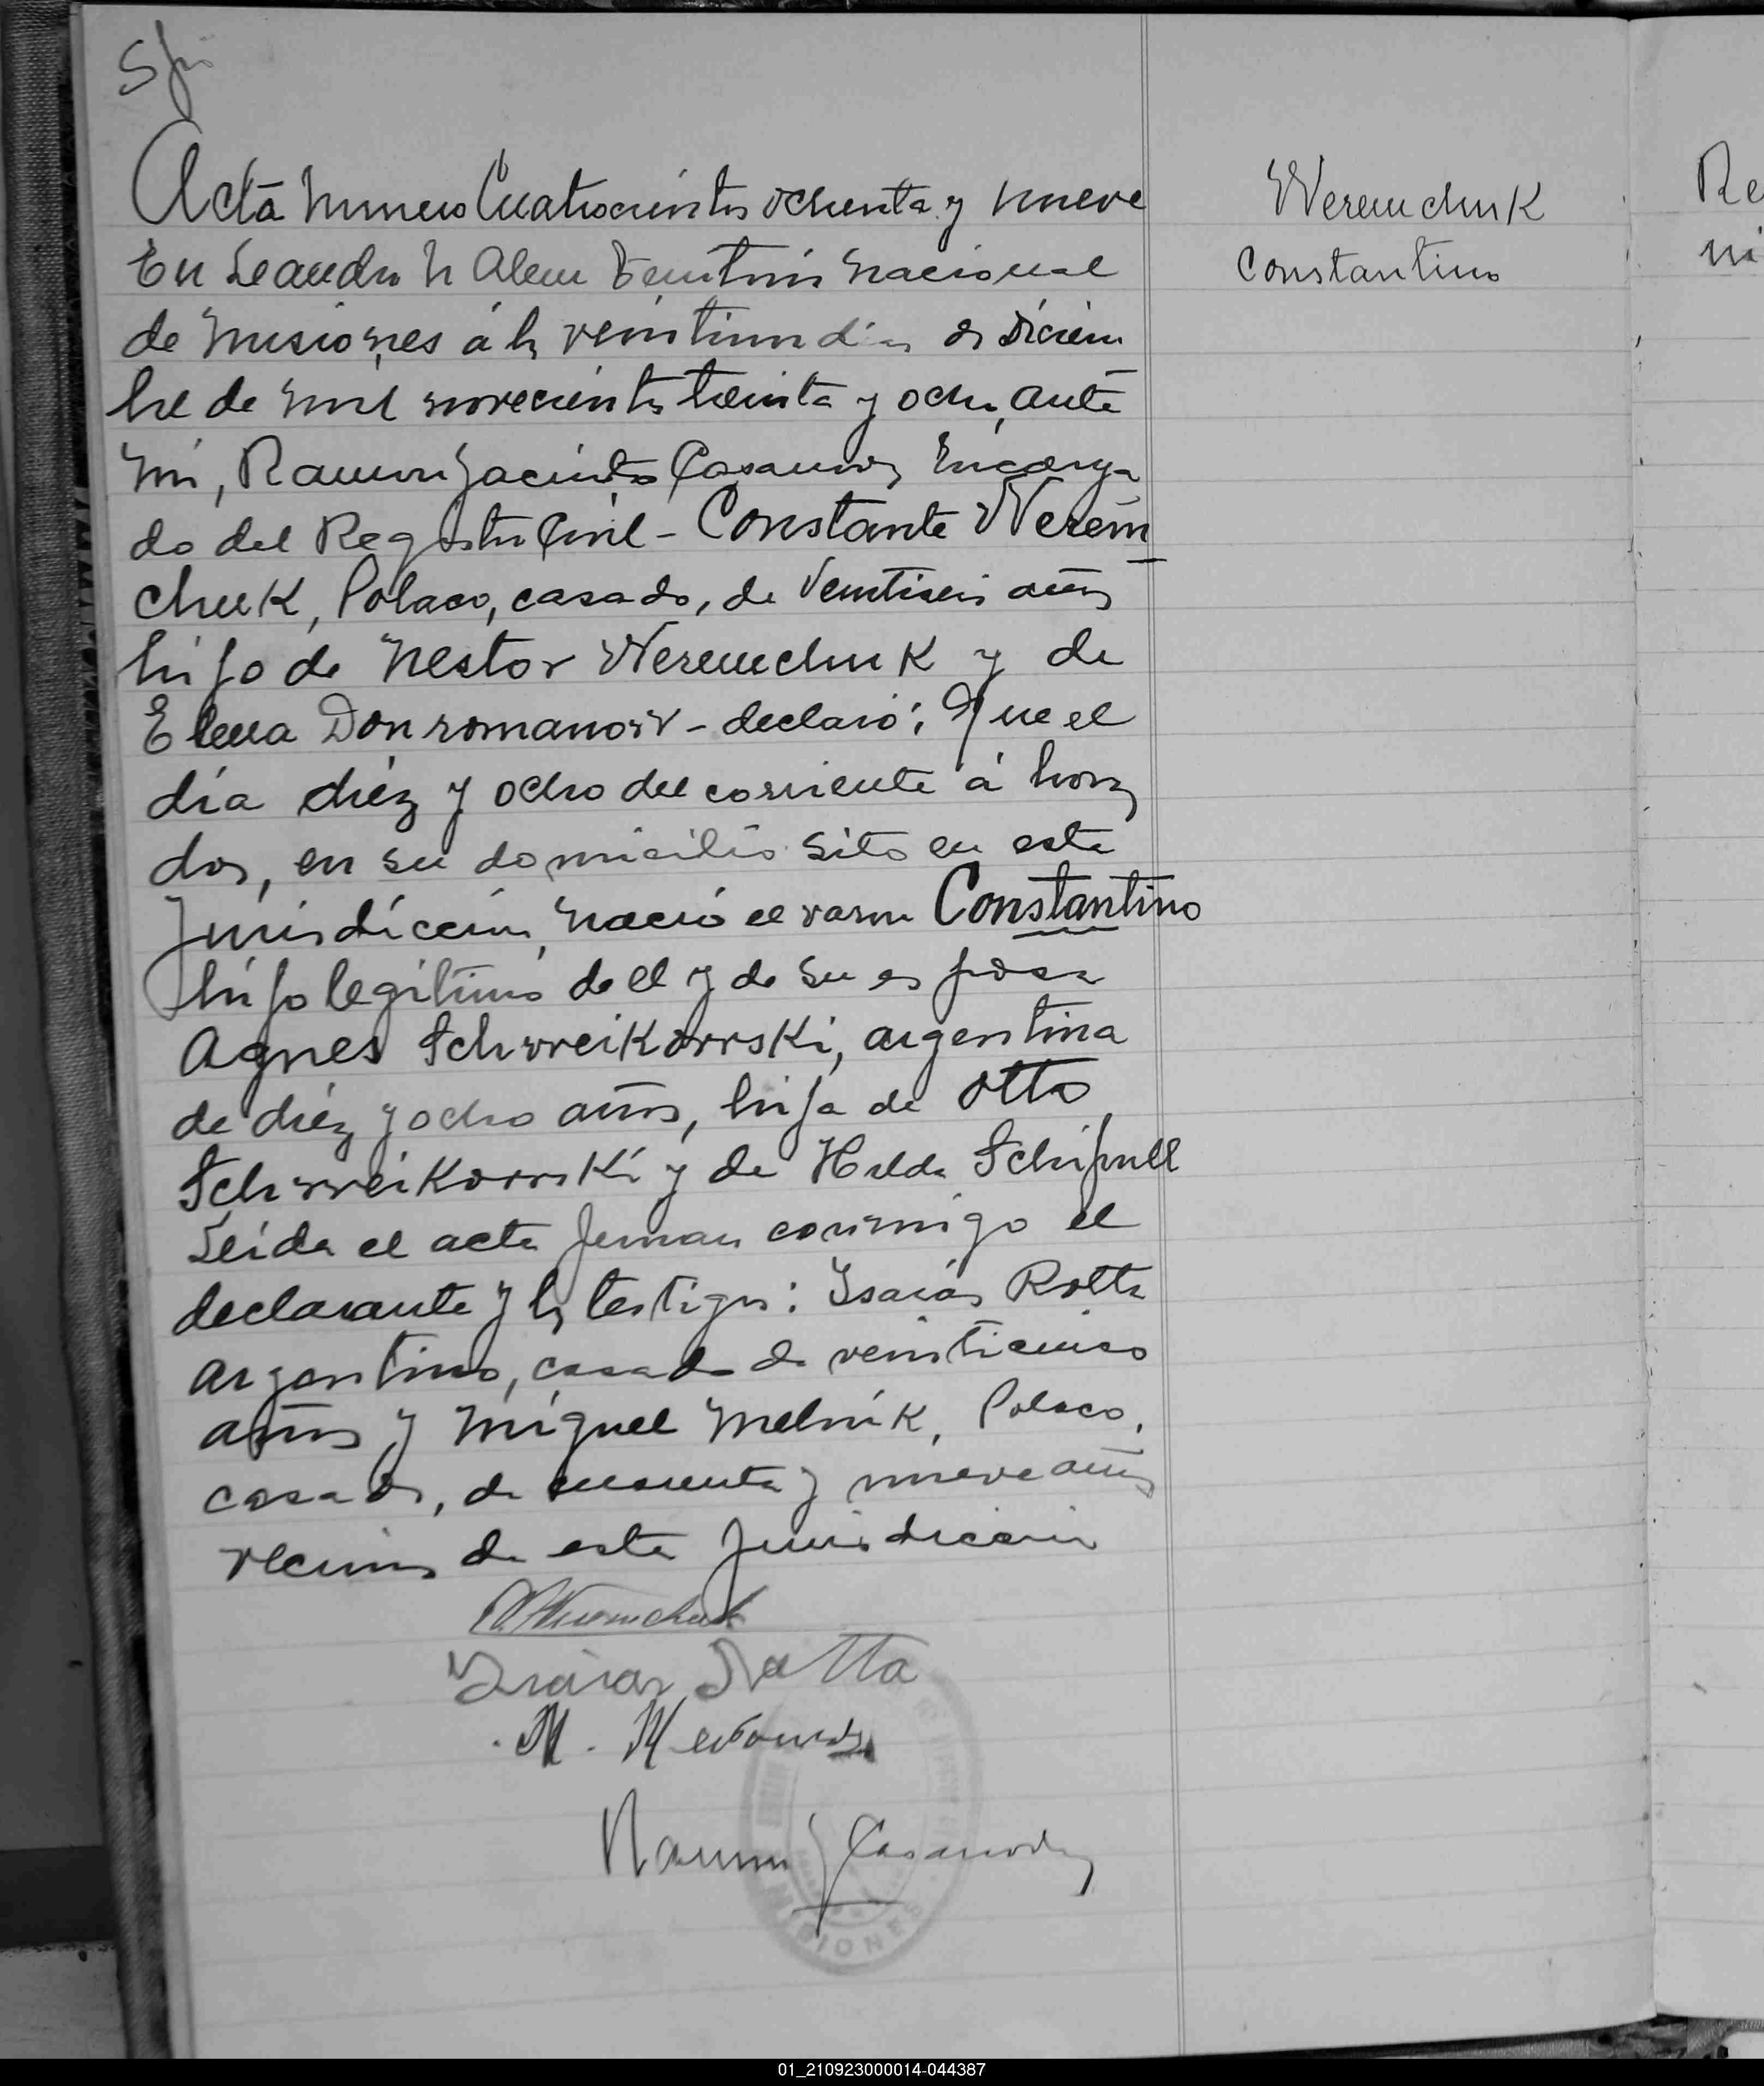 Acta Numero Cuatrocientos ochenta y nueve
En Leandro N Alem Territorio Nacional
de Misiones á los veintiun dias de Diciem
bre de mil novecientos treinta y ocho, ante
mi, Ramon Jacinto Casanova, Encarga
do del Registro Civil - Constante Werem
chuk, Polaco, casado, de veintiseis años
hijo de Nestor Weremchuk y de
Elena - declaró: Que el
día diéz y ocho del corriente á horas
dos, en su domicilio sito en esta
Jurisdicción, nació el varon Constantino
hijo legítimo de el y de su esposa
Agnes Schweikowski, argentina
de diéz y ocho años, hija de Otto
Schweikowski y de Hilda Schipull
Leída el acta firman conmigo el
declarante y los testigos: Isaías Rotta
argentino, casado de veinticinco
años y Miguel Melnik, Polaco,
casado, de y nueve años
vecinos de esta Jurisdiccion
Weremchuk
Isaias Rotta
M.
Ramon J Casanova
MISIONES
Weremchuk
Constantino
Re
ni
01_210923000014-044387